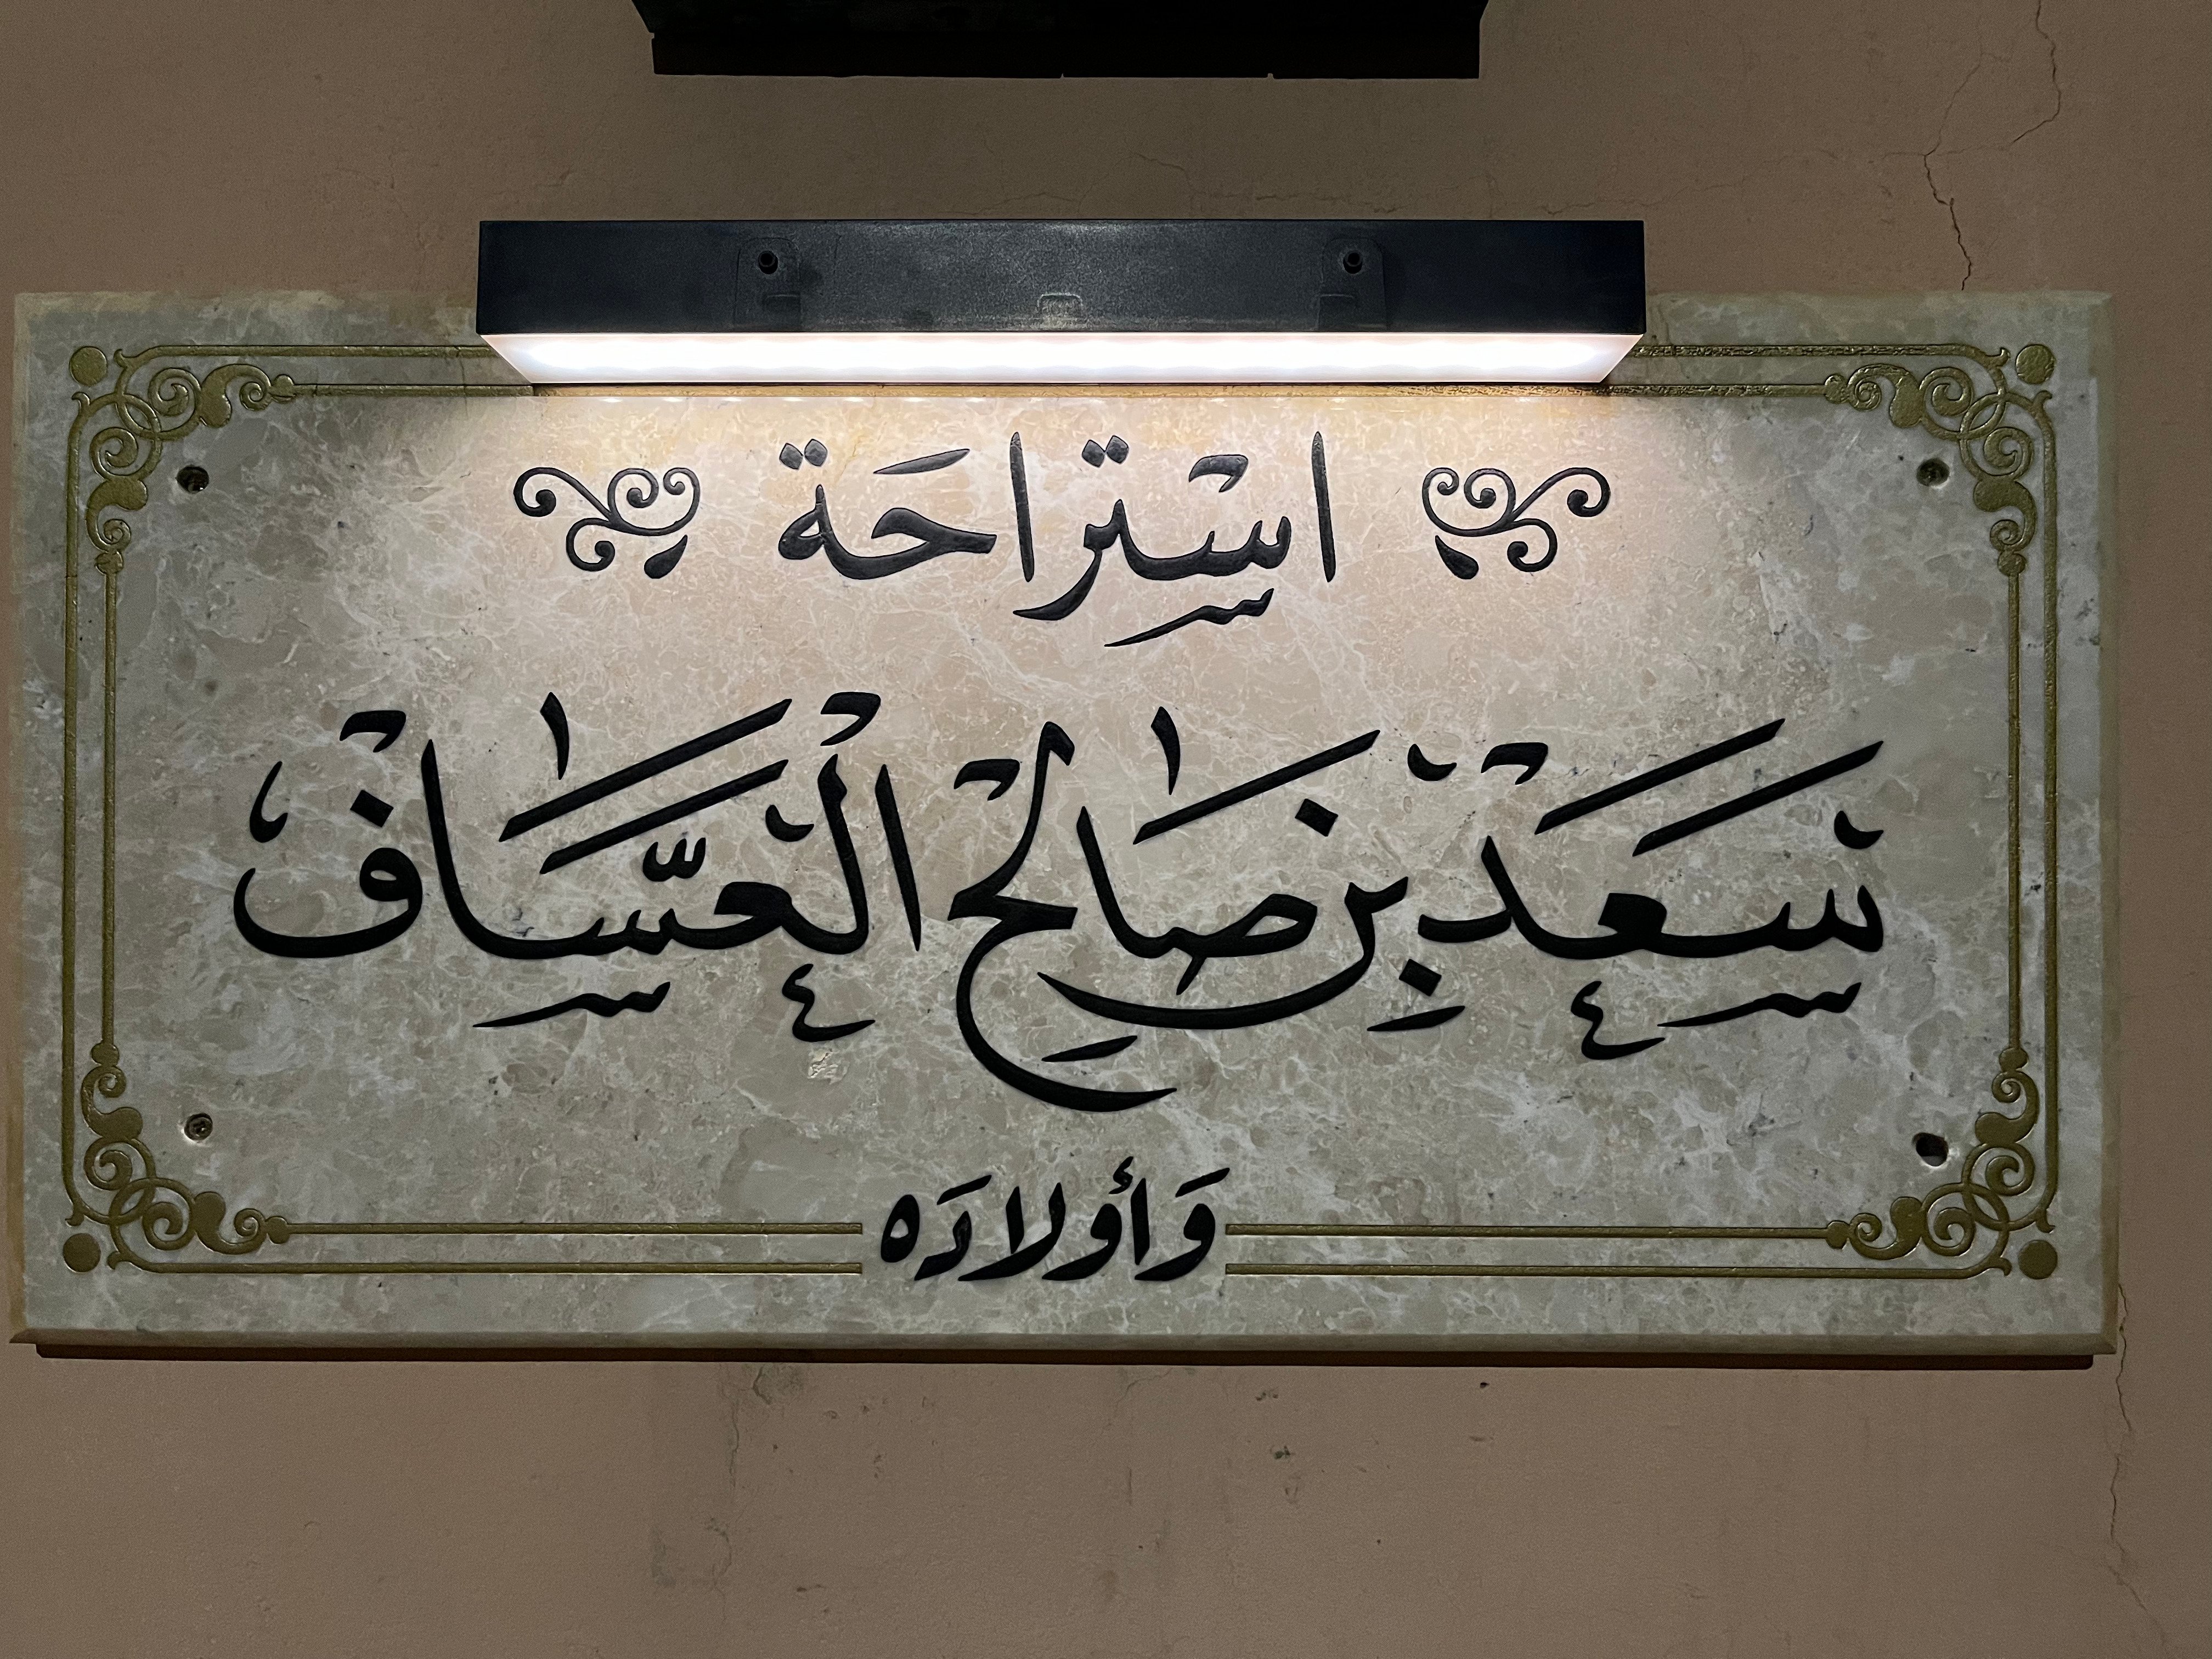 استراحة
سعد بن صالح العساف
وأولاده